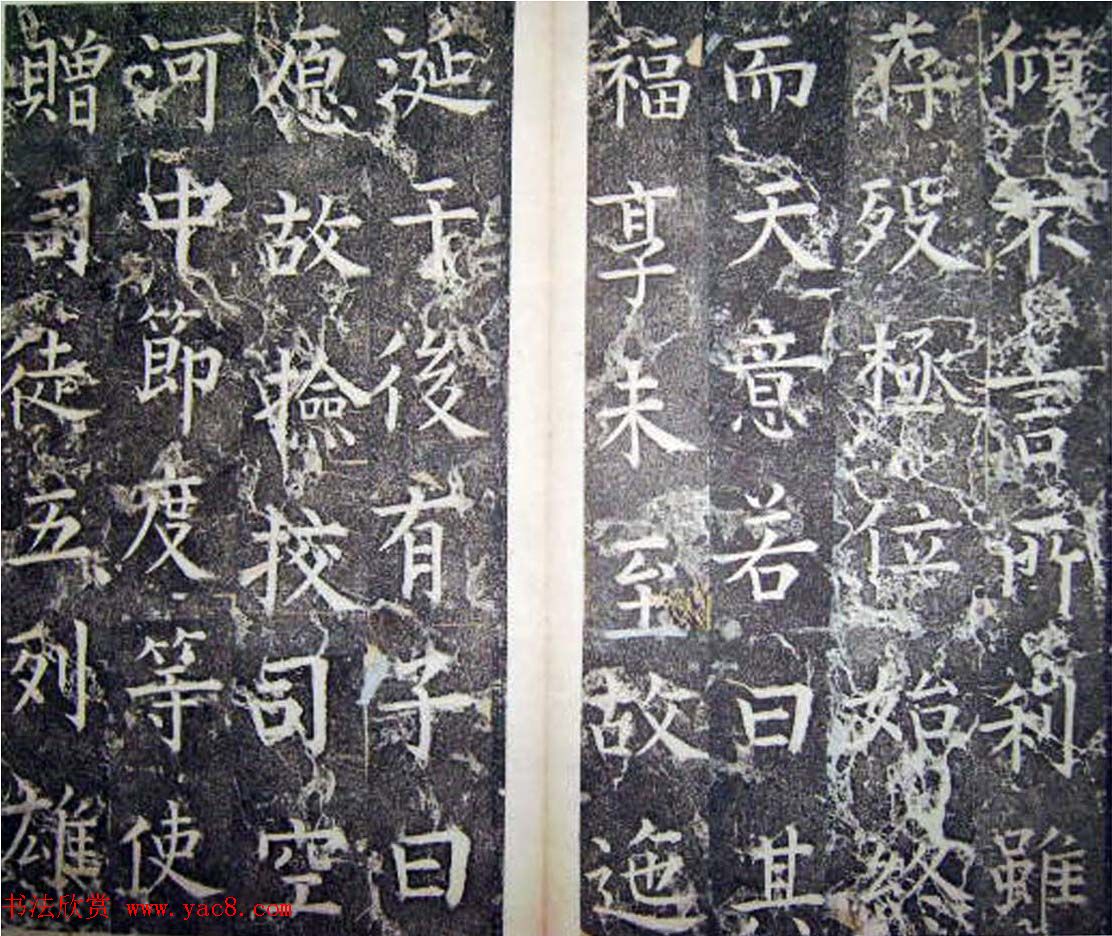 傾不言所利雖
存歿極位始終
而天意若曰其
福享未至故迤
涎于後有子曰
愿故撿挍司空
河中節度等使
贈司徒五列雄
书法欣赏 www.yac8.com